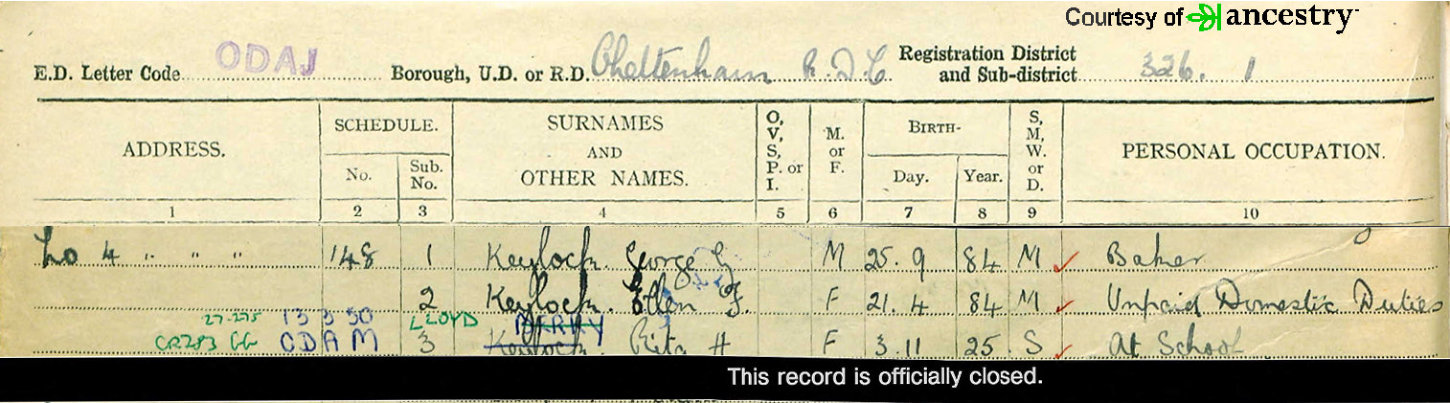 Courtesy of ancestry
E.D. Letter Code ODAJ Borough, U.D. or R.D. Cheltenham R.D.C Registration District and Sub-district 326. 1
ADDRESS. SCHEDULE. No. Sub. No. SURNAMES AND OTHER NAMES. O, V, S, P. or I. M. or F. BIRTH- Day. Year. S, M, W. or D. PERSONAL OCCUPATION.
1 2 3 4 5 6 7 8 9 10
No 4 " " " 148 1 Keylock. George G M 25. 9 84 M Baker
2 Keylock. Ellen F. F 21. 4 84 M Unpaid Domestic Duties
13 3 50 LLOYD BERRY
CR283 GG ODAM 3 Keylock. Rita H F 3. 11 25. S At School
This record is officially closed.